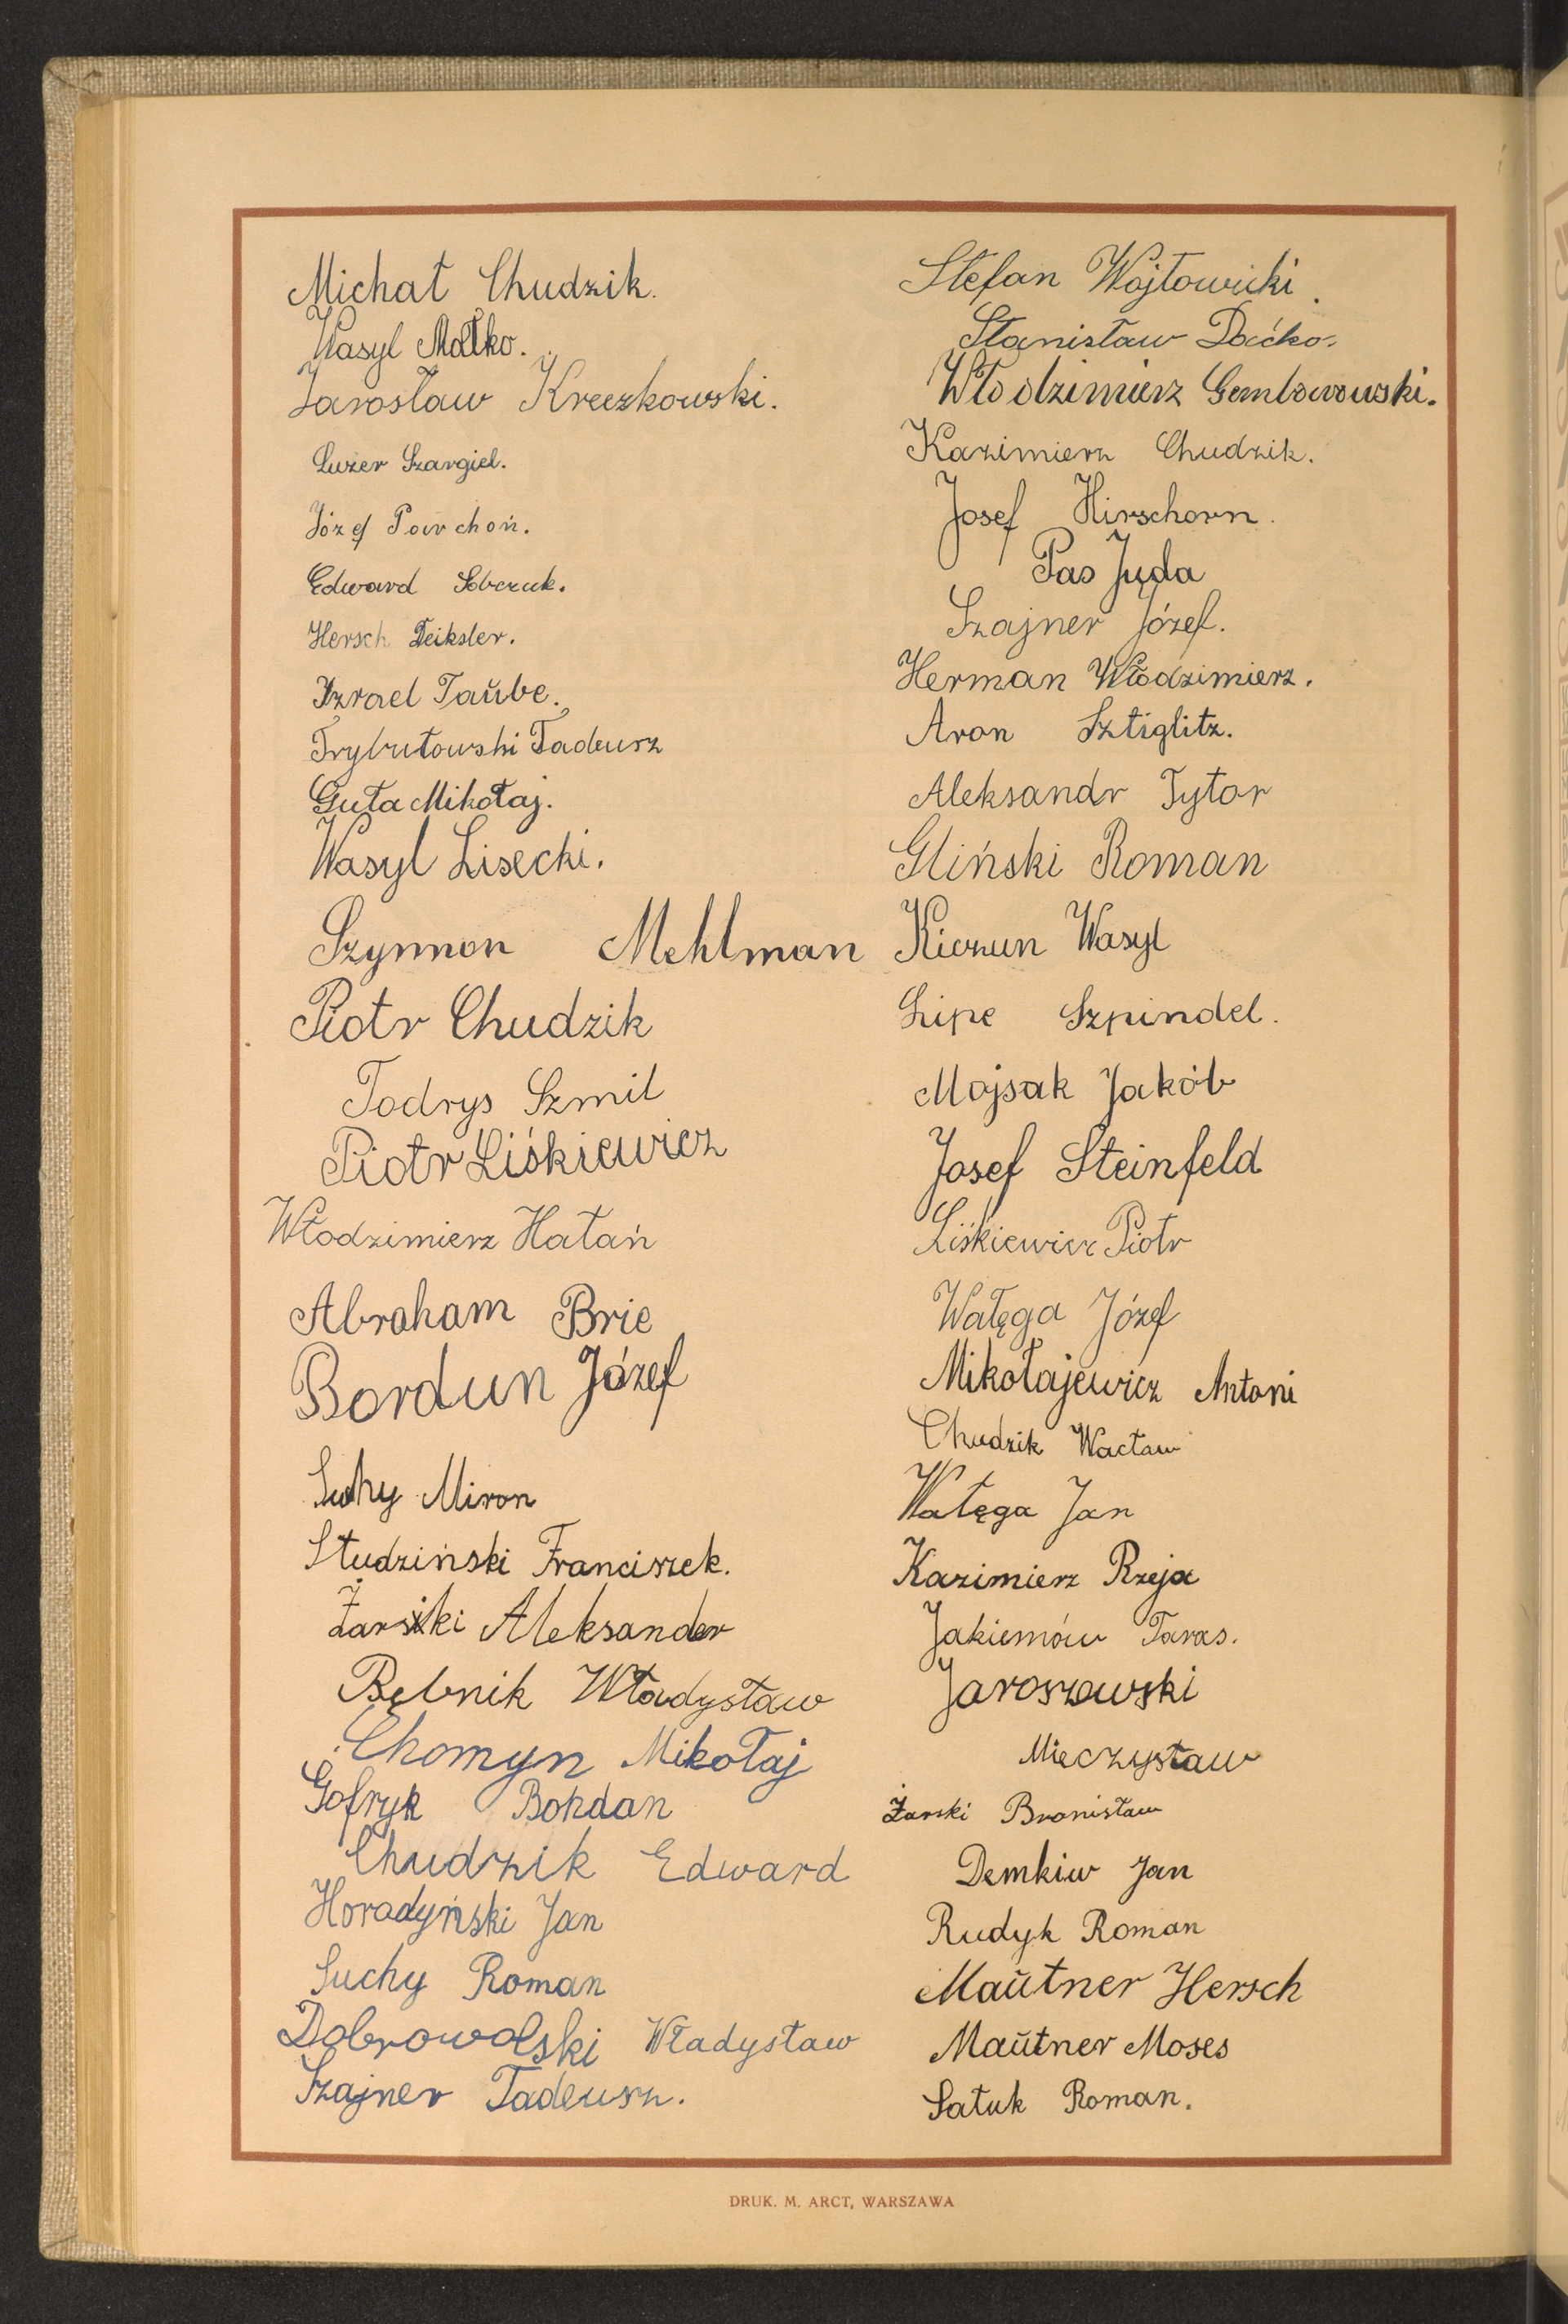 Michał Chudzik.
Wasyl Małko.
Jarosław Kreczkowski.
Luzer Szargiel.
Józef Parchoń.
Edward Sobczuk.
Hersch Deiksler.
Izrael Taŭbe.
Trybutowski Tadeusz
Guła Mikołaj.
Wasyl Lisecki.
Szymon Mehlman
Piotr Chudzik
Todrys Szmil
Piotr Liśkiewicz
Włodzimierz Hałań
Abraham Brie
Bordun Józef
Suchy Miron
Studziński Franciszek.
Żarski Aleksander
Rębnik Władysław
Chomyn Mikołaj
Gofryk Bohdan
Chudzik Edward
Horadyński Jan
Suchy Roman
Dobrowolski Władysław
Szajner Tadeusz.
Stefan Wojtowicki.
Stanisław Daćko.
Włodzimierz
Kazimierz Chudzik.
Josef Hirschorn.
Pas Juda
Szajner Józef.
Herman Włodzimierz.
Aron Sztiglitz.
Aleksandr Tytor
Gliński Roman
Kiczun Wasyl
Lipe Szpindel.
Mojsak Jakób
Josef Steinfeld
Liśkiewicz Piotr
Wałęga Józef
Mikołajewicz Antoni
Chudzik Wacław
Wałęga Jan
Kazimierz Rzeja
Jakiemów Taras.
Jaroszewski
Mieczysław
Żarski Bronisław
Demkiw Jan
Rudyk Roman
Maŭtner Hersch
Maŭtner Moses
Sałuk Roman.
DRUK. M. ARCT, WARSZAWA